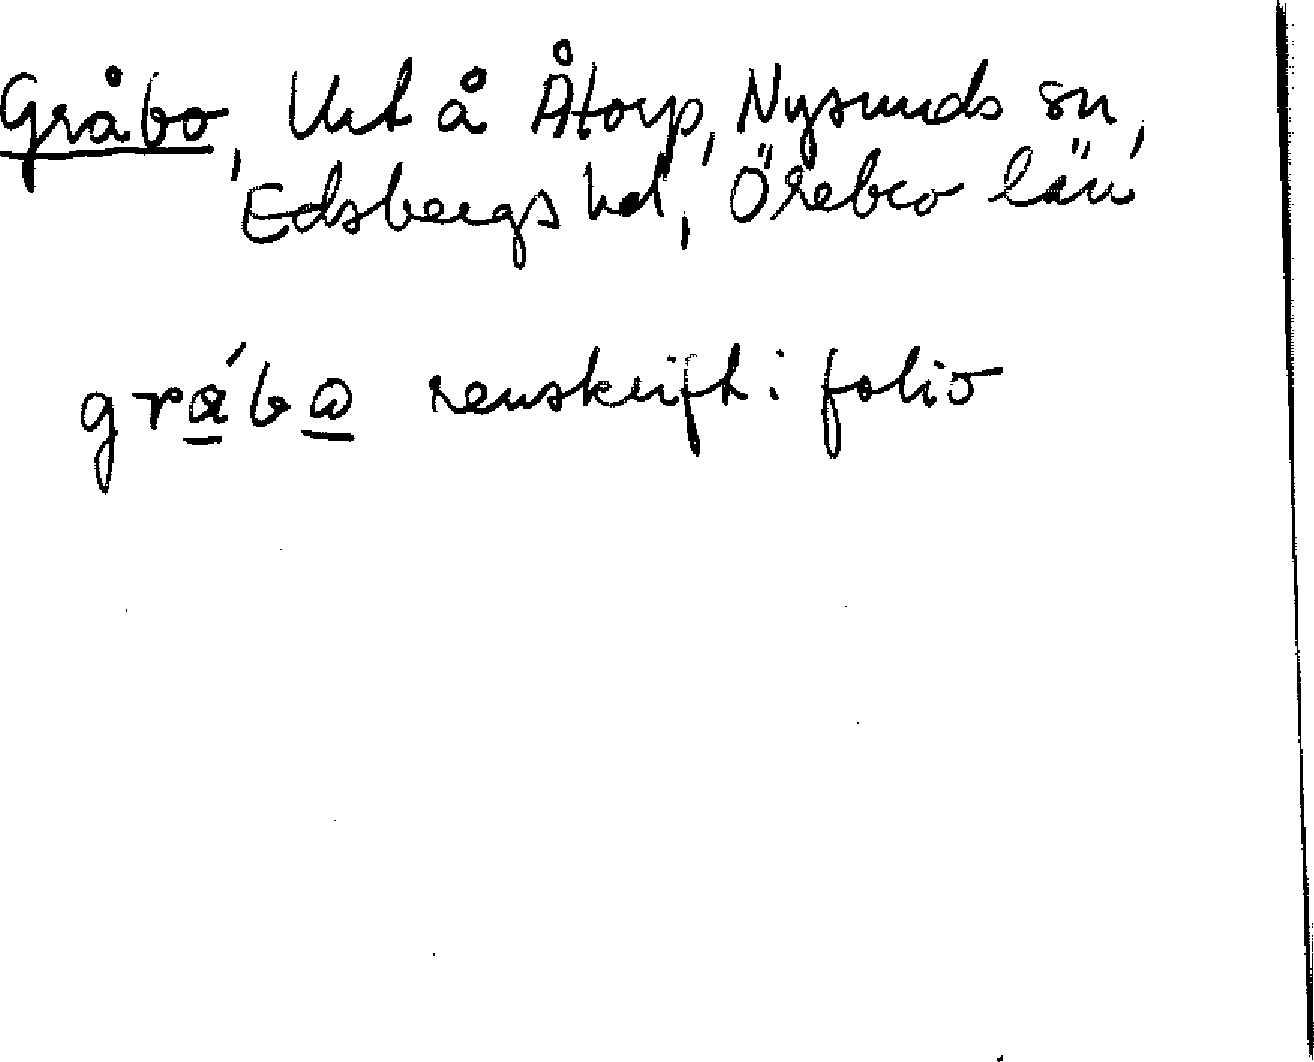 Gråbo, Vret å Åtorp, Nysunds sn,
Edsbergs hd, Örebro län
gråbω renskrift i folio